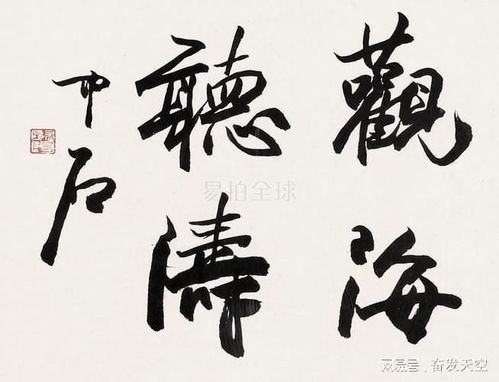 觀海
聽濤
中石
易拍全球
搜狐号@奋发天空